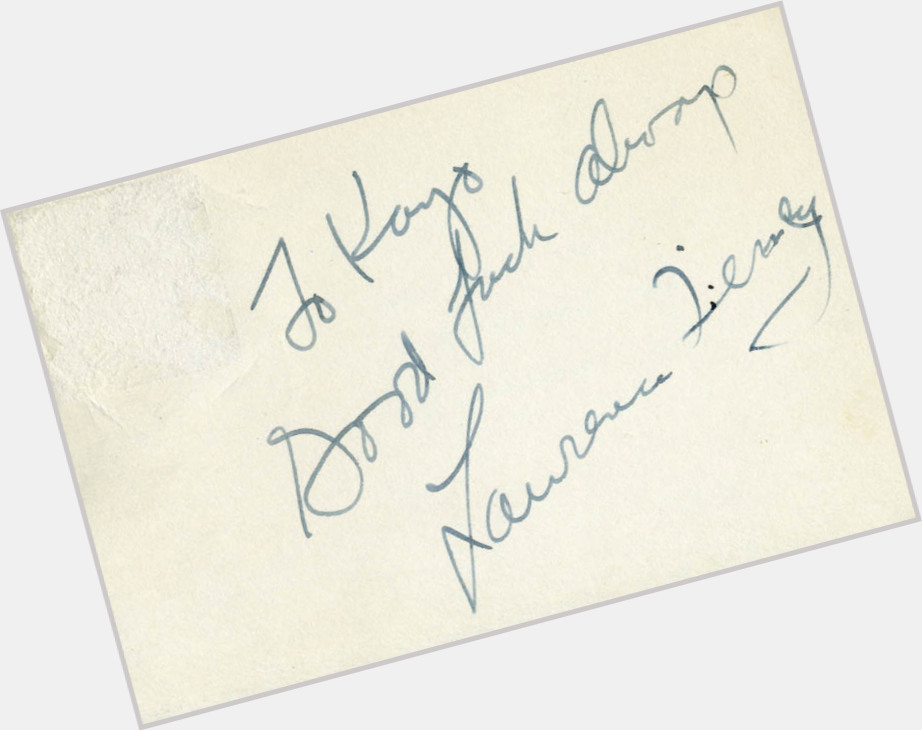 To Kayo
Good Luck Always
Lawrence Tierney